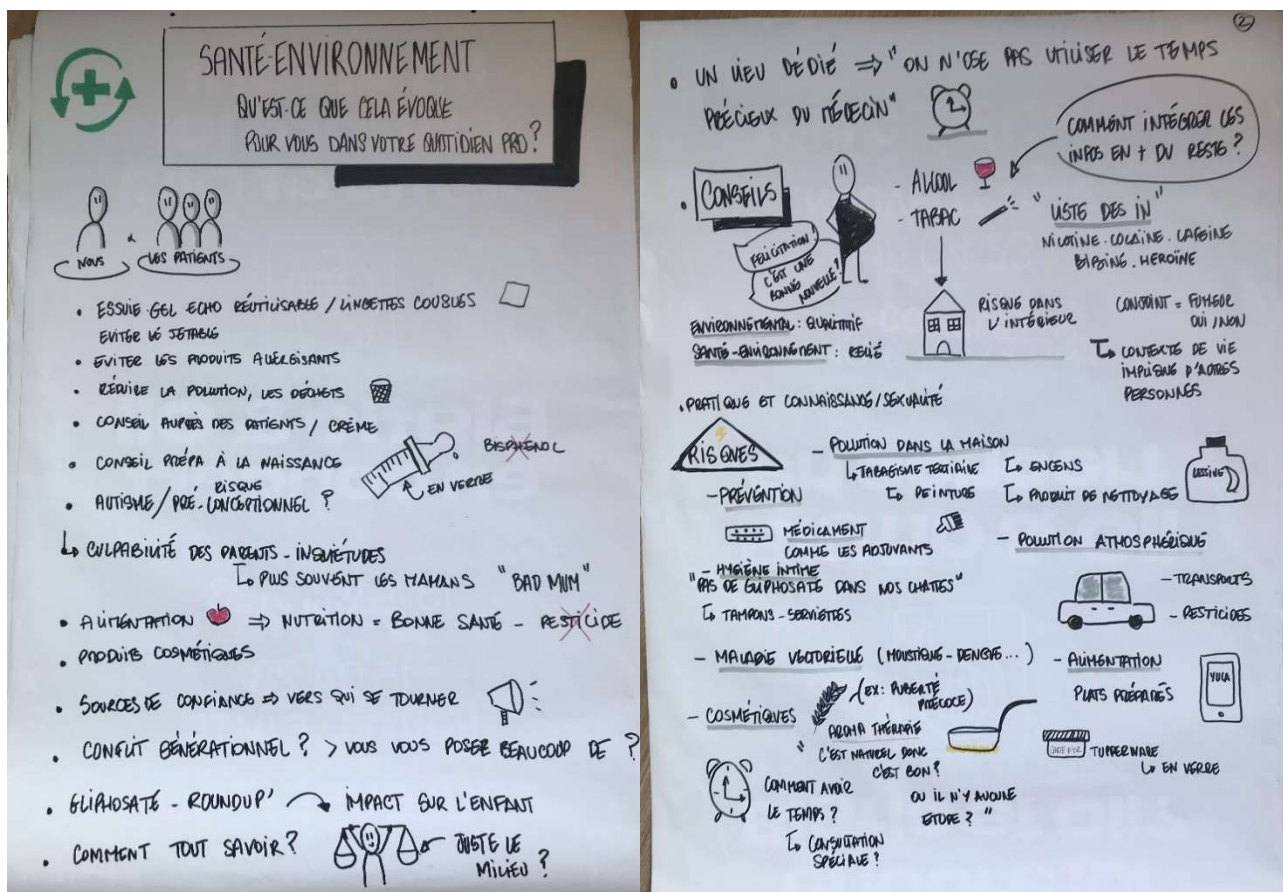 SANTÉ-ENVIRONNEMENT
QU'EST-CE QUE CELA ÉVOQUE
POUR VOUS DANS VOTRE QUOTIDIEN PRO?
NOUS & LES PATIENTS
• ESSUIE-GEL ECHO RÉUTILISABLE / LINGETTES COUSUES
EVITER LE JETABLE
• EVITER LES PRODUITS ALLERGISANTS
• RÉDUIRE LA POLUTION, LES DÉCHETS
• CONSEIL AUPRÈS DES PATIENTS / CRÈME
• CONSEIL PRÉPA À LA NAISSANCE
BISPHENOL
EN VERRE
RISQUE
• AUTISME / PRÉ-CONCEPTIONNEL ?
↳ CULPABILITÉ DES PARENTS - INQUIÉTUDES
↳ PLUS SOUVENT LES MAMANS "BAD MUM"
• ALIMENTATION ⇒ NUTRITION = BONNE SANTÉ - PESTICIDE
• PRODUITS COSMÉTIQUES
• SOURCES DE CONFIANCE ⇒ VERS QUI SE TOURNER
• CONFLIT GÉNÉRATIONNEL ? > VOUS VOUS POSER BEAUCOUP DE ?
• GLIPHOSATE - ROUNDUP' → IMPACT SUR L'ENFANT
• COMMENT TOUT SAVOIR ?
JUSTE LE
MILIEU ?
2
• UN LIEU DÉDIÉ ⇒ "ON N'OSE PAS UTILISER LE TEMPS
PRÉCIEUX DU MÉDECIN"
COMMENT INTÉGRER CES
INFOS EN + DU RESTE ?
• CONSEILS
FELICITATION !
C'EST UNE
BONNE
NOUVELLE ?
- ALCOOL
- TABAC
"LISTE DES IN"
NICOTINE. COCAÏNE. CAFEINE
HEROÏNE
ENVIRONNEMENTAL : QUALITATIF
SANTÉ-ENVIRONNEMENT : RELIÉ
RISQUE DANS
L'INTÉRIEUR
CONJOINT = FUMEUR
OUI / NON
↳ CONTEXTE DE VIE
IMPLIQUE D'AUTRES
PERSONNES
• PRATIQUE ET CONNAISSANCE / SEXUALITÉ
RISQUES
- POLUTION DANS LA MAISON
↳ TABAGISME TERTIAIRE
↳ ENCENS
↳ PEINTURE
↳ PRODUIT DE NETTOYAGE
LESSIVE
- PRÉVENTION
MÉDICAMENT
COMME LES ADJUVANTS
- HYGIÈNE INTIME
"PAS DE GLIPHOSATE DANS NOS CHATTES"
↳ TAMPONS - SERVIETTES
- POLUTION ATMOSPHÉRIQUE
- TRANSPORTS
- PESTICIDES
- MALADIE VECTORIELLE (MOUSTIQUE - DENGUE...)
- ALIMENTATION
PLATS PRÉPARÉS
YUCA
- COSMÉTIQUES
(EX: PUBERTÉ
PRÉCOCE)
AROMA THÉRAPIE
"C'EST NATUREL DONC
C'EST BON ?
OU IL N'Y AUCUNE
ETUDE ? "
TUPPERWARE
↳ EN VERRE
COMMENT AVOIR
LE TEMPS ?
↳ CONSULTATION
SPÉCIALE ?